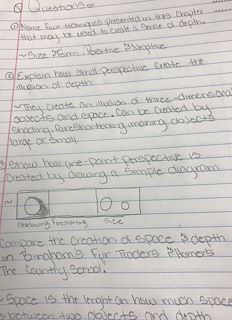 Questions
① Name four techniques presented in this chapter
that may be used to create a sense of depth.
~ Size, Form, Positive & Negative
② Explain how aerial perspective create the
illusion of depth
~ They create an illusion of three-dimensional
objects and space. Can be created by
shading, foreshortening, making objects
large or small
③ Show how one-point perspective is
created by drawing a simple diagram
~
Shadowing Foreshorting Size
Compare the creation of space & depth
in Bingham's Fur Traders & Homer's
The Country School.
~ Space is the lenght an how much space
is between two objects and depth